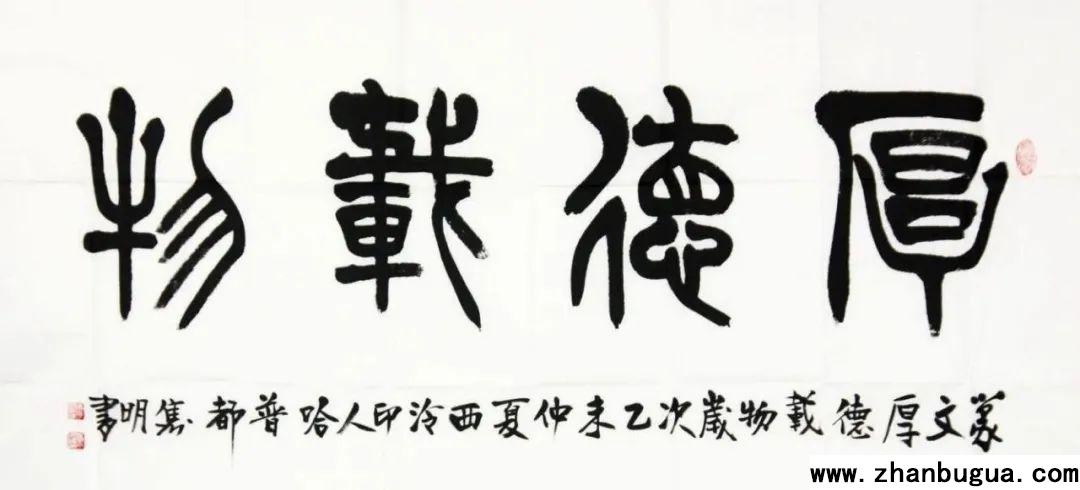 厚德載物
篆文厚德載物歲次乙未仲夏西泠印人哈普都雋明書
www.zhanbugua.com